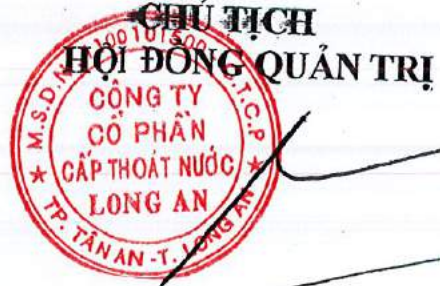 CHỦ TỊCH
HỘI ĐỒNG QUẢN TRỊ
CÔNG TY
CỔ PHẦN
CẤP THOÁT NƯỚC
LONG AN
TP. TÂN AN - T. LONG AN